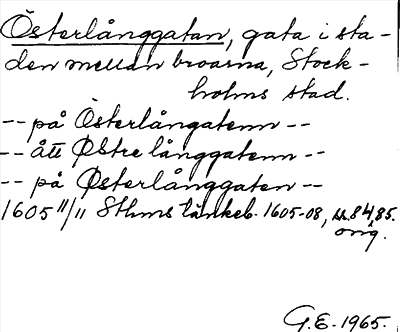 Österlånggatan, gata i sta-
den mellan broarna, Stock-
holms stad.
-- på Österlångatenn --
-- átt Østre långgatenn --
-- på Østerlånggaten --
1605 11/11 Sthms tänkeb. 1605-08, s. 84, 85.
orig.
G.E. 1965.